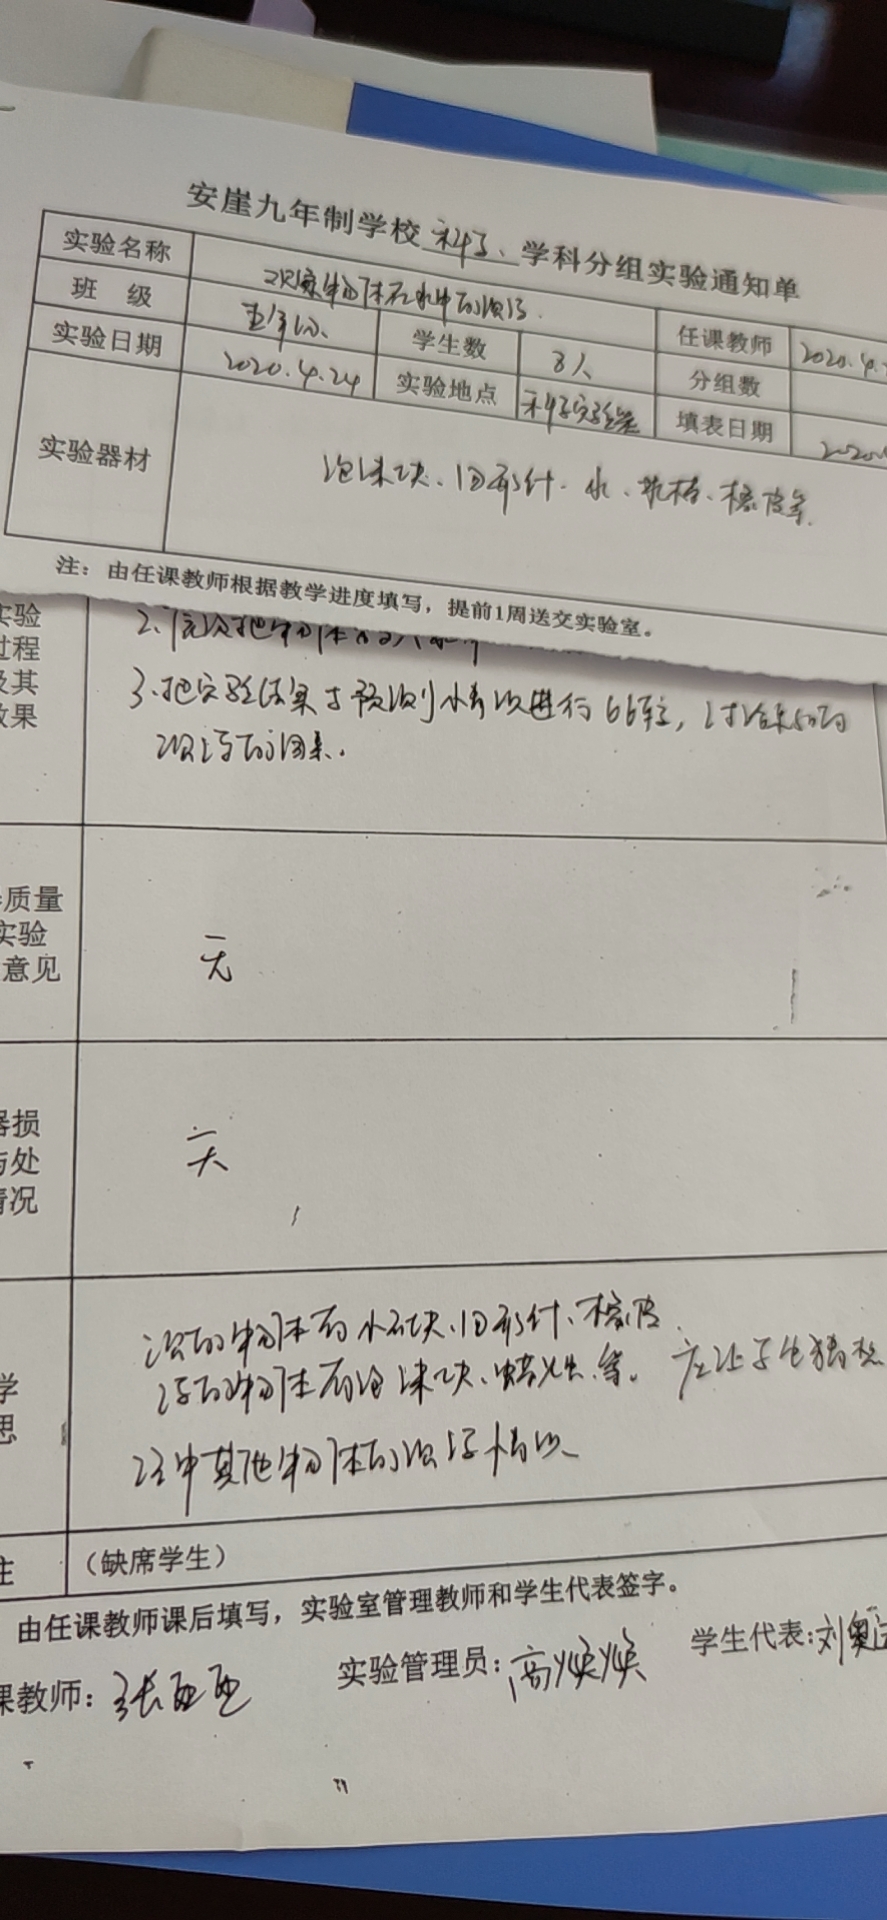 安崖九年制学校 科学、学科分组实验通知单
实验名称 观察物体在水中的沉浮. 任课教师 2020.4.
班 级 五年级 学生数 8人 分组数
实验日期 2020.4.24 实验地点 科学实验室 填表日期 2020.
实验器材 泡沫块、回形针、水、蜡烛、橡皮等.
注：由任课教师根据教学进度填写，提前1周送交实验室。
实验
过程
及其
效果
2.依次把物体放入
3.把实验结果与预测情况进行比较，讨论
沉浮的因素.
质量
实验
意见
无
器损
与处
情况
无
沉的物体有小石块、回形针、橡皮.
浮的物体有泡沫块、蜡烛等。应让学生猜想
注
（缺席学生）
由任课教师课后填写，实验室管理教师和学生代表签字。
课教师：张
实验管理员：高焕焕
学生代表:刘奥